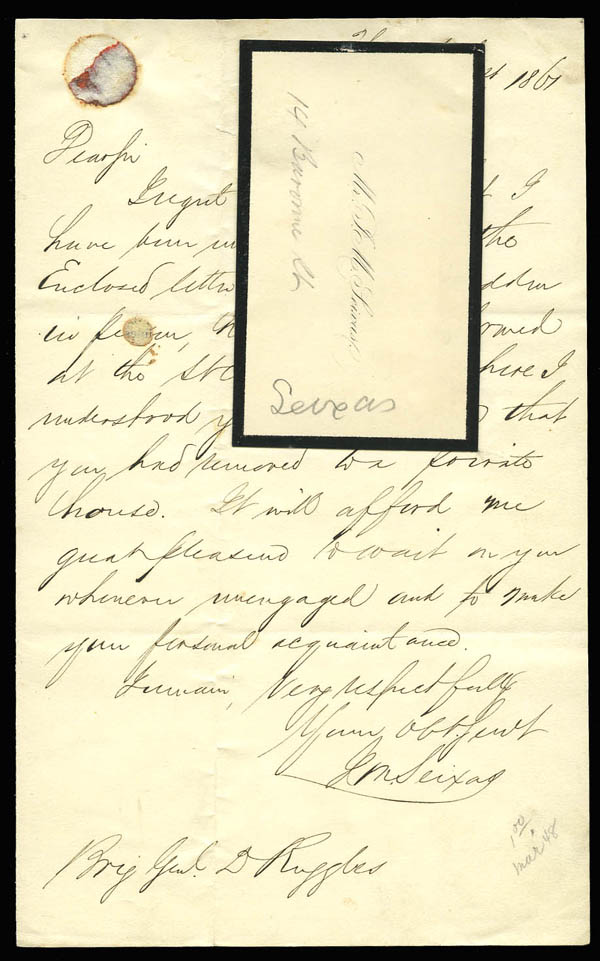 1861
Dear Sir
I regret I
have been the
Enclosed letter
in person,
at the St here I
understood that
you had removed to a private
house. It will afford me
great pleasure to wait on you
whenever unengaged and to make
your personal acquaintance.
I remain, Very respectfully
Your Obt Servt
J M. Seixas
Brig Genl. D Ruggles
Mr. J. M. Seixas,
14 Baronne St
Seixas
1 00
mar 48